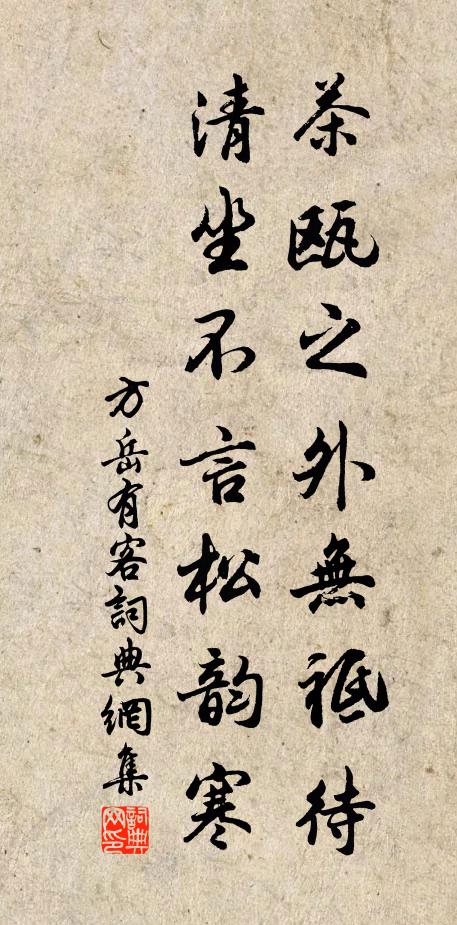 茶甌之外無祗待
清坐不言松韵寒
方岳有客詞典網集
詞典網印